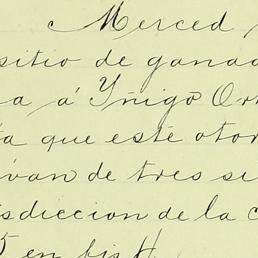 Merced
sitio de ganad
a á Yñigo Or
a que este otor
van de tres si
sdiccion de la c
5 en bis H.